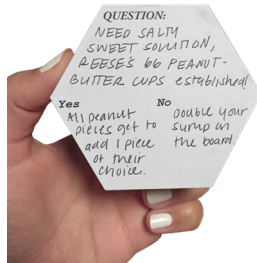 QUESTION:
NEED SALTY
SWEET SOLUTION,
REESE'S 66 PEANUT-
BUTTER CUPS established!
Yes
All peanut
pieces get to
add 1 piece
of their
choice.
No
Double your
sump in
the board